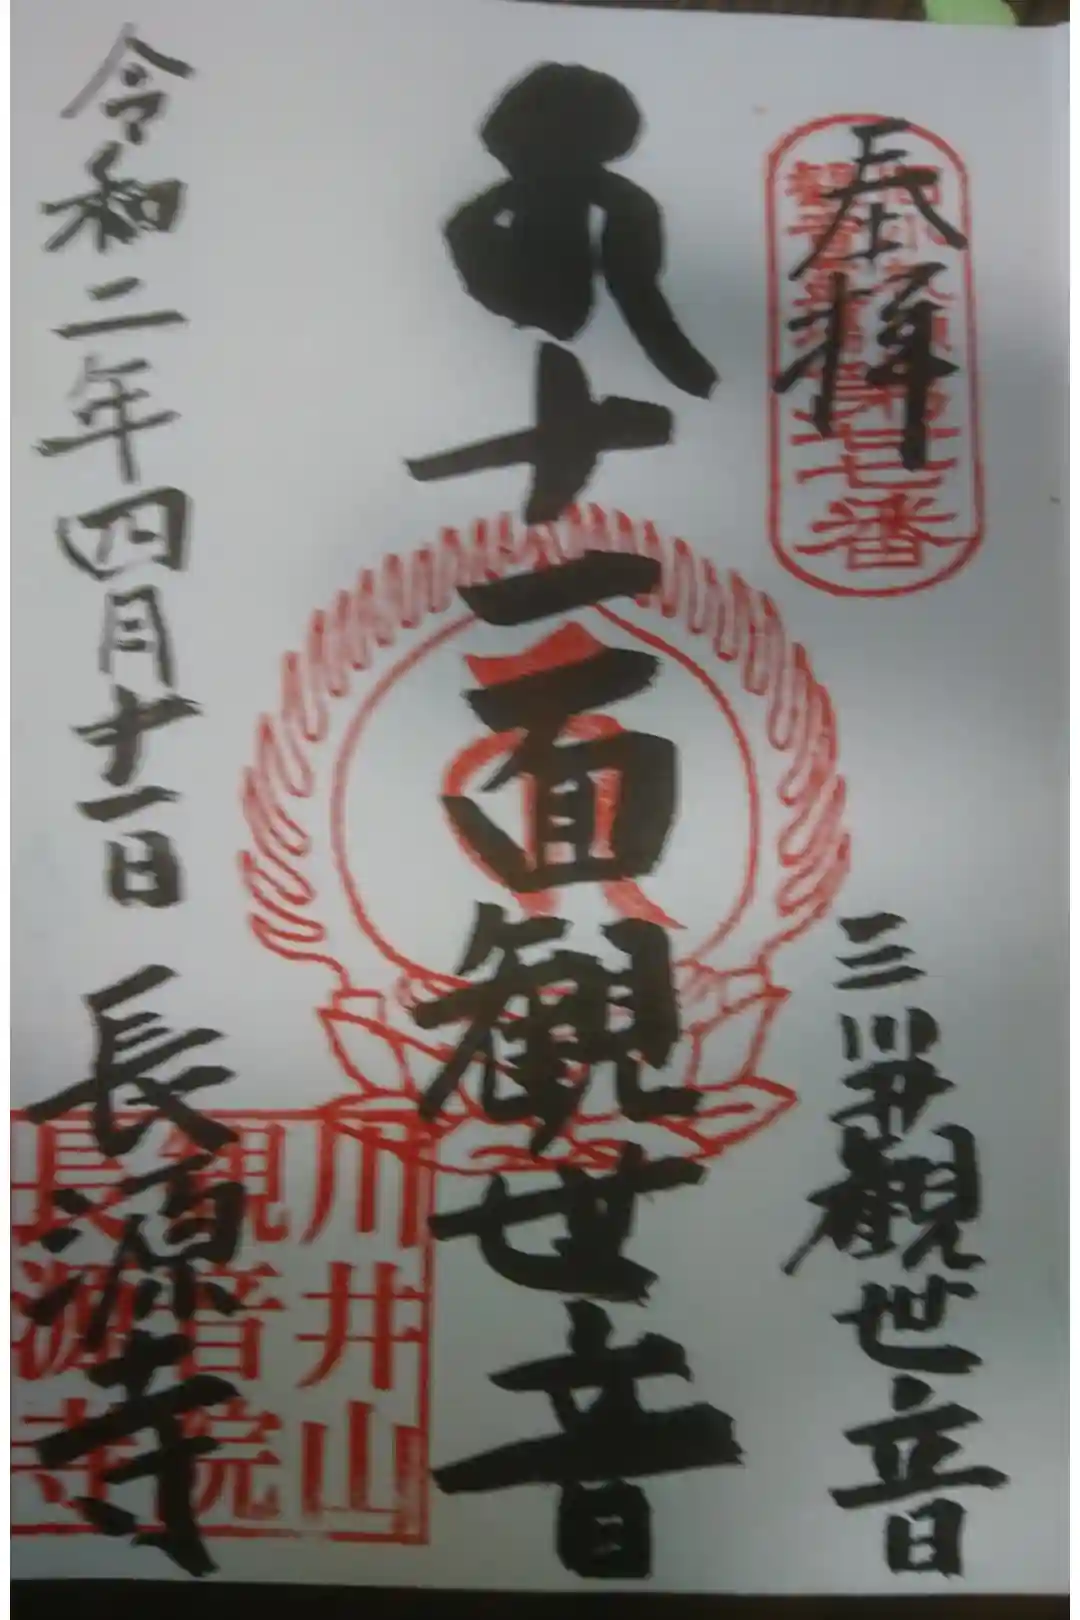 奉拝
三川井観世音
十一面観世音
令和二年四月十一日 長源寺
七番
川井山
観音院
長源寺